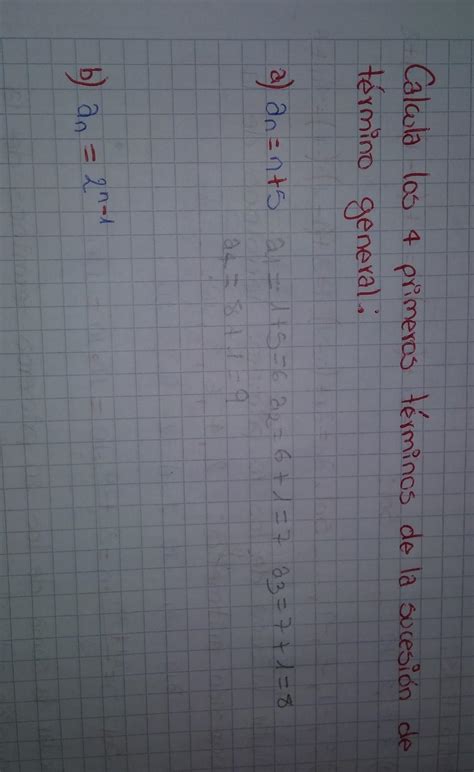 Calcula los 4 primeros términos de la sucesión de
término general:
a) aₙ = n+5 a₁ = 1+5=6 a₂=6+1=7 a₃=7+1=8
a₄ = 8+1=9
b) aₙ = 2ⁿ⁻¹